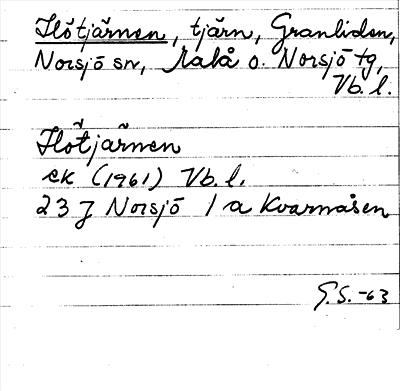 Flötjärnen, tjärn, Granliden,
Norsjö sn, Malå o. Norsjö tg,
Vb. l.
Flötjärnen
ek (1961) Vb. l.
23 J Norsjö 1 a Kvarnåsen
G.S. -63